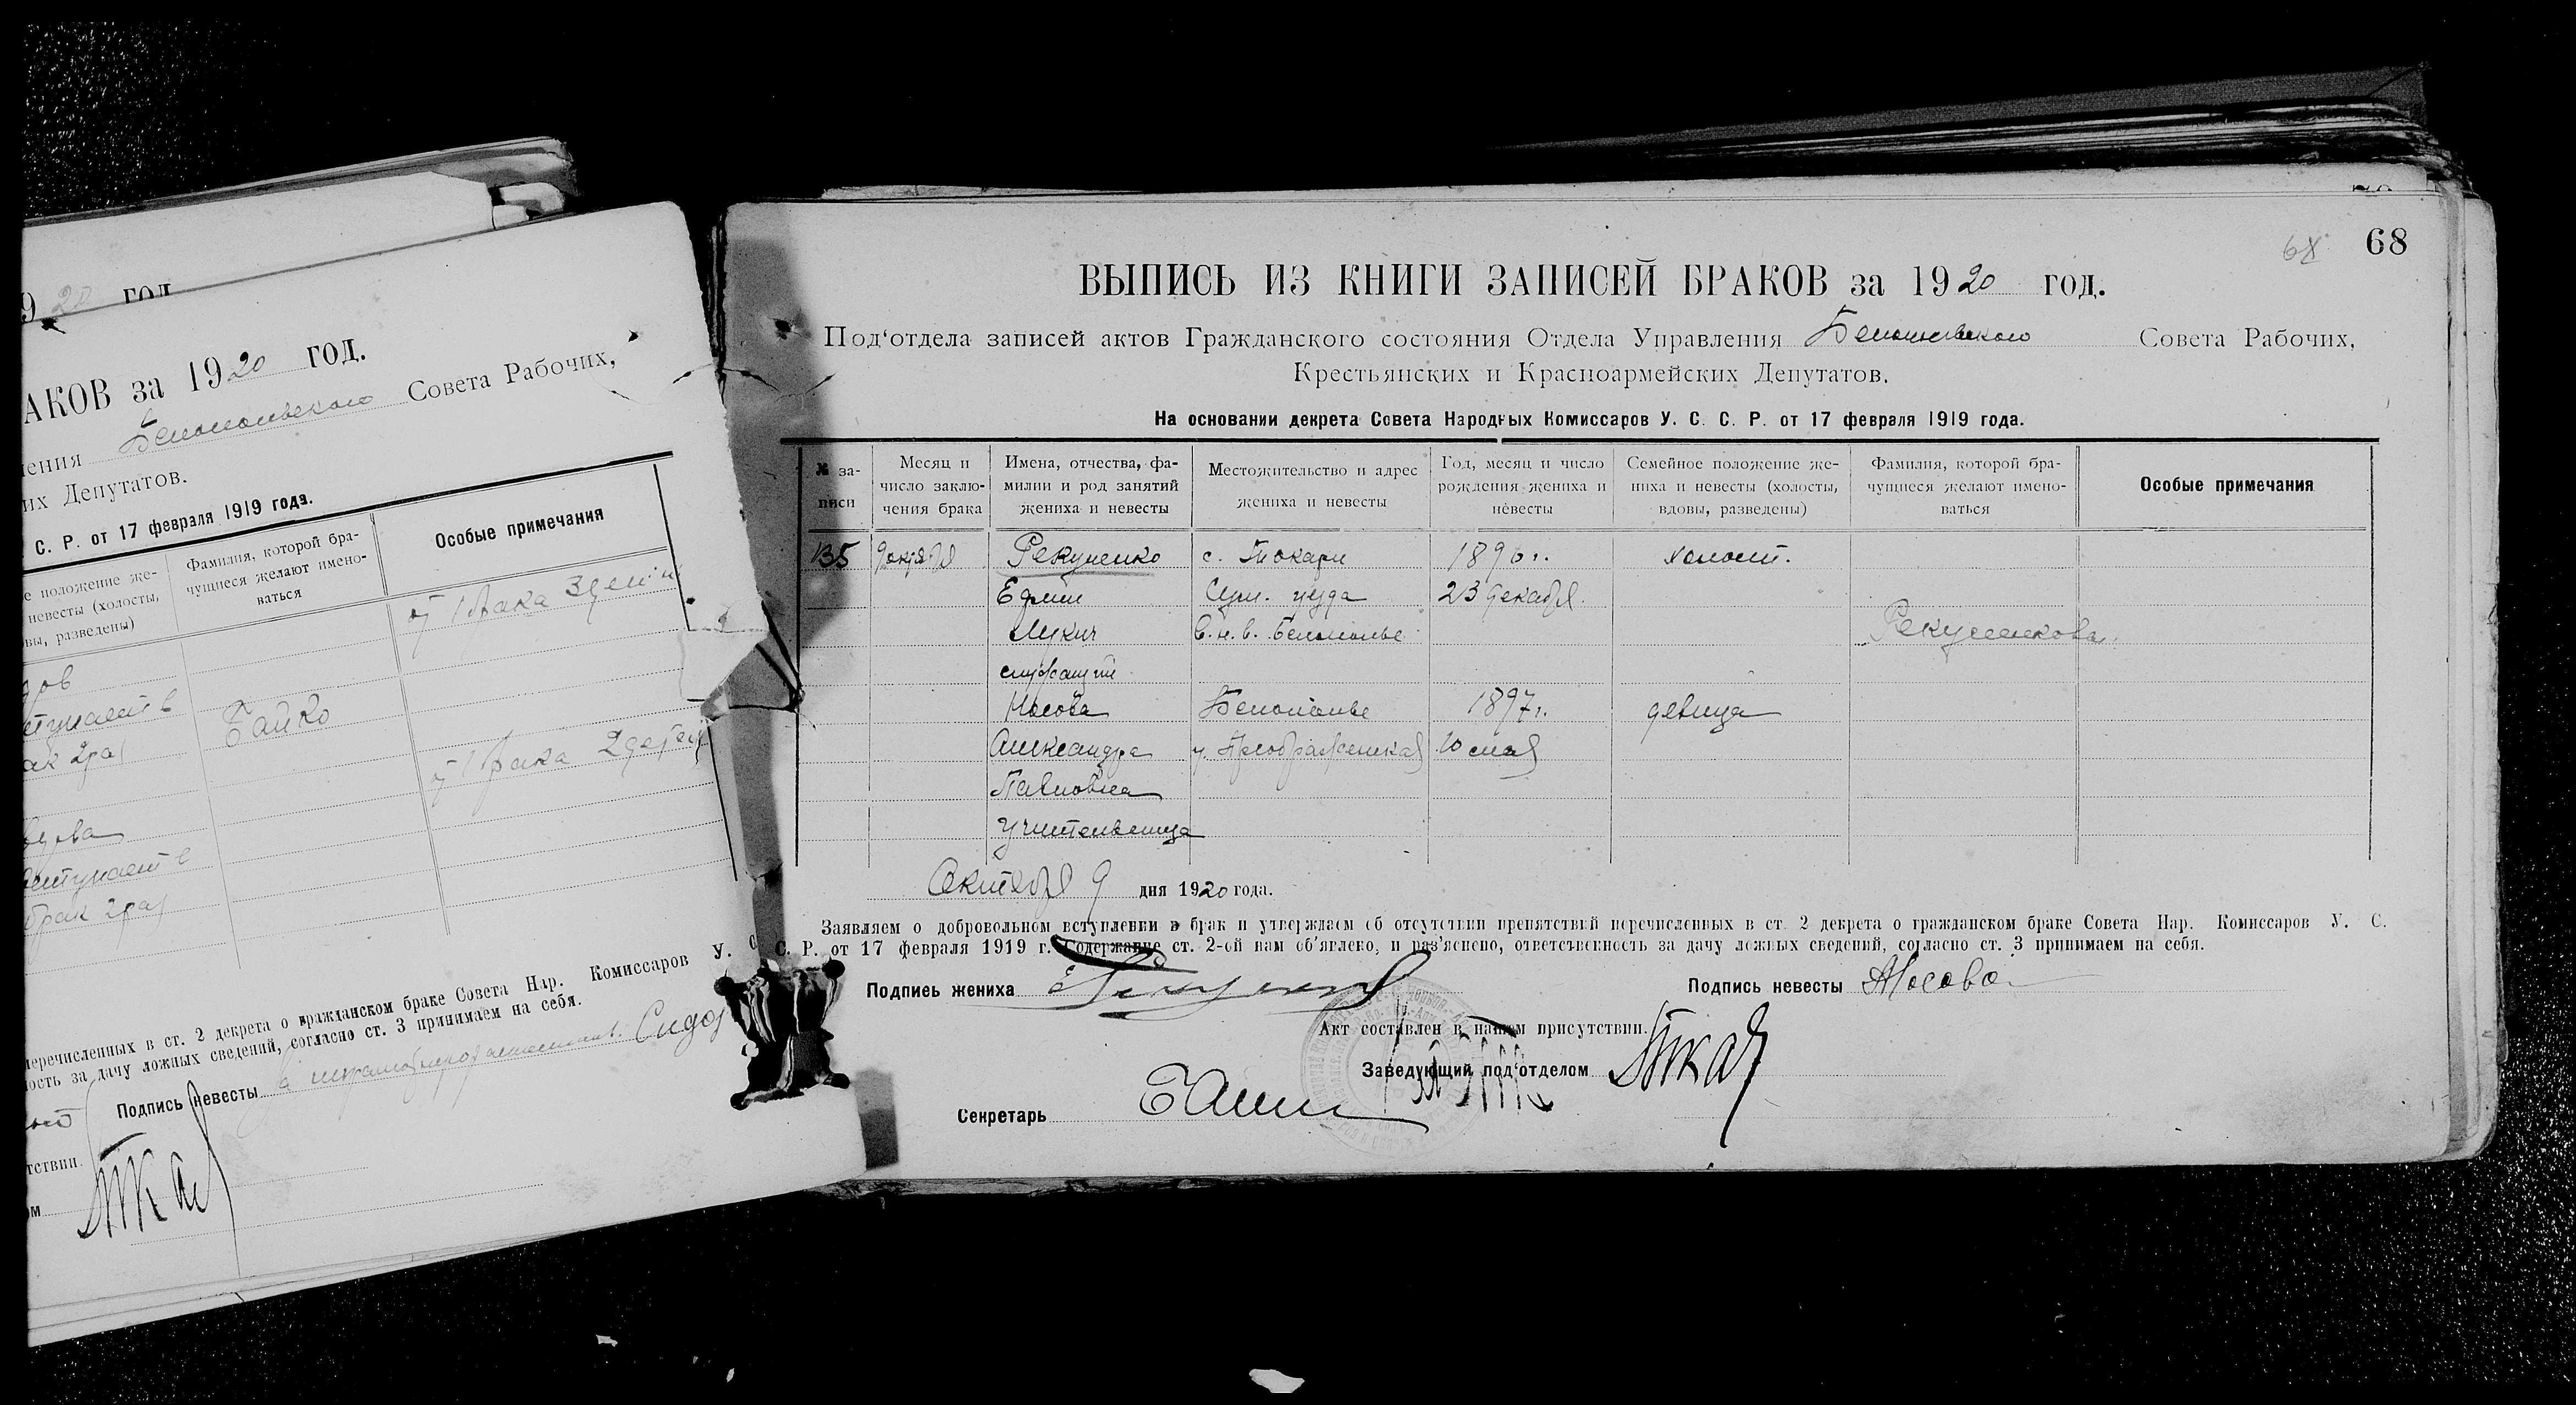 9 20 год
АКОВ за 1920 год.
ения Белопольского Совета Рабочих,
их Депутатов.
С. Р. от 17 февраля 1919 года.
е положение же-
невесты (холосты,
вы, разведены)
Фамилия, которой бра-
чущиеся желают имено-
ваться
Особые примечания
брака
Бапко
брака 2 детей
перечисленных в ст. 2 декрета о гражданском браке Совета Нар. Комиссаров У. С.
ость за дачу ложных сведений, согласно ст. 3 принимаем на себя.
Подпись невесты
тствии.
68
68
ВЫПИСЬ ИЗ КНИГИ ЗАПИСЕЙ БРАКОВ за 1920 год.
Под'отдела записей актов Гражданского состояния Отдела Управления Белопольского Совета Рабочих,
Крестьянских и Красноармейских Депутатов.
На основании декрета Совета Народных Комиссаров У. С. С. Р. от 17 февраля 1919 года.
№ за-
писи
Месяц и
число заклю-
чения брака
Имена, отчества, фа-
милии и род занятий
жениха и невесты
Местожительство и адрес
жениха и невесты
Год, месяц и число
рождения жениха и
невесты
Семейное положение же-
ниха и невесты (холосты,
вдовы, разведены)
Фамилия, которой бра-
чущиеся желают имено-
ваться
Особые примечания
135 9 октября Рекуненко с. Токари 1896 г. холост.
Ефим Сум. уезда 23 декабря.
Лукич в. н. в. Белополье Рекуненкова.
служащий
Носова Белополье 1897 г. девица
Александра у. Преображенская 10 мая
Павловна
учительница
Октября 9 дня 1920 года.
Заявляем о добровольном вступлении в брак и утверждаем об отсутствии препятствий перечисленных в ст. 2 декрета о гражданском браке Совета Нар. Комиссаров У. С.
С. Р. от 17 февраля 1919 г. Содержание ст. 2-ой нам об'явлено, и раз'яснено, ответственность за дачу ложных сведений, согласно ст. 3 принимаем на себя.
Подпись жениха Подпись невесты АНосова
Акт составлен в нашем присутствии.
Заведующий под'отделом
Секретарь